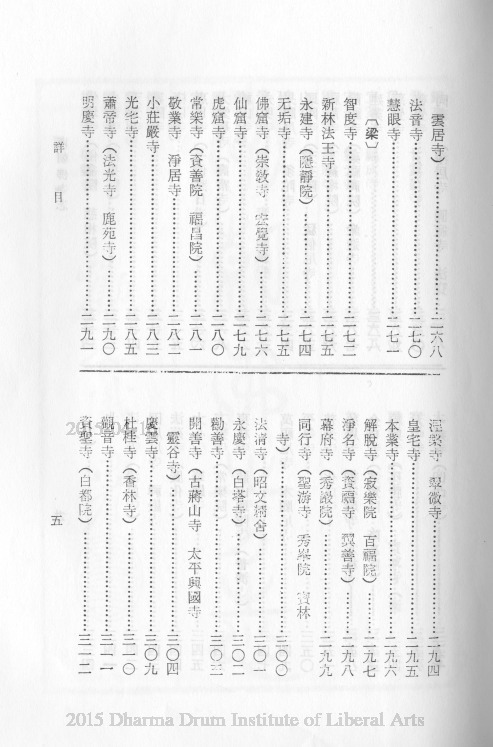 雲居寺）……二六八
法音寺……二七〇
慧眼寺……二七一
〔梁〕
智度寺……二七二
新林法王寺……二七五
永建寺（隱靜院）……二七四
无垢寺……二七五
佛窟寺（崇教寺　宏覺寺）……二七六
仙窟寺……二七九
虎窟寺……二八〇
常樂寺（資善院　福昌院）……二八一
敬業寺　淨居寺……二八二
小莊嚴寺……二八三
光宅寺……二八五
蕭帝寺（法光寺　鹿苑寺）……二九〇
明慶寺……二九一
涅槃寺　翠微寺……二九四
皇宅寺……二九五
本業寺……二九六
解脫寺（寂樂院　百福院）……二九七
淨名寺（資福寺　翼善寺）……二九八
幕府寺（秀巖院）……二九九
同行寺（聖游寺　秀峯院　寶林
寺）……三〇〇
法清寺（昭文精舍）……三〇一
永慶寺（白塔寺）……三〇二
勸善寺……三〇三
開善寺（古蔣山寺　太平興國寺
靈谷寺）……三〇四
慶雲寺……三〇九
杜桂寺（香林寺）……三一〇
觀音寺……三一一
資聖寺（白都院）……三一二
詳目
五
2015 Dharma Drum Institute of Liberal Arts